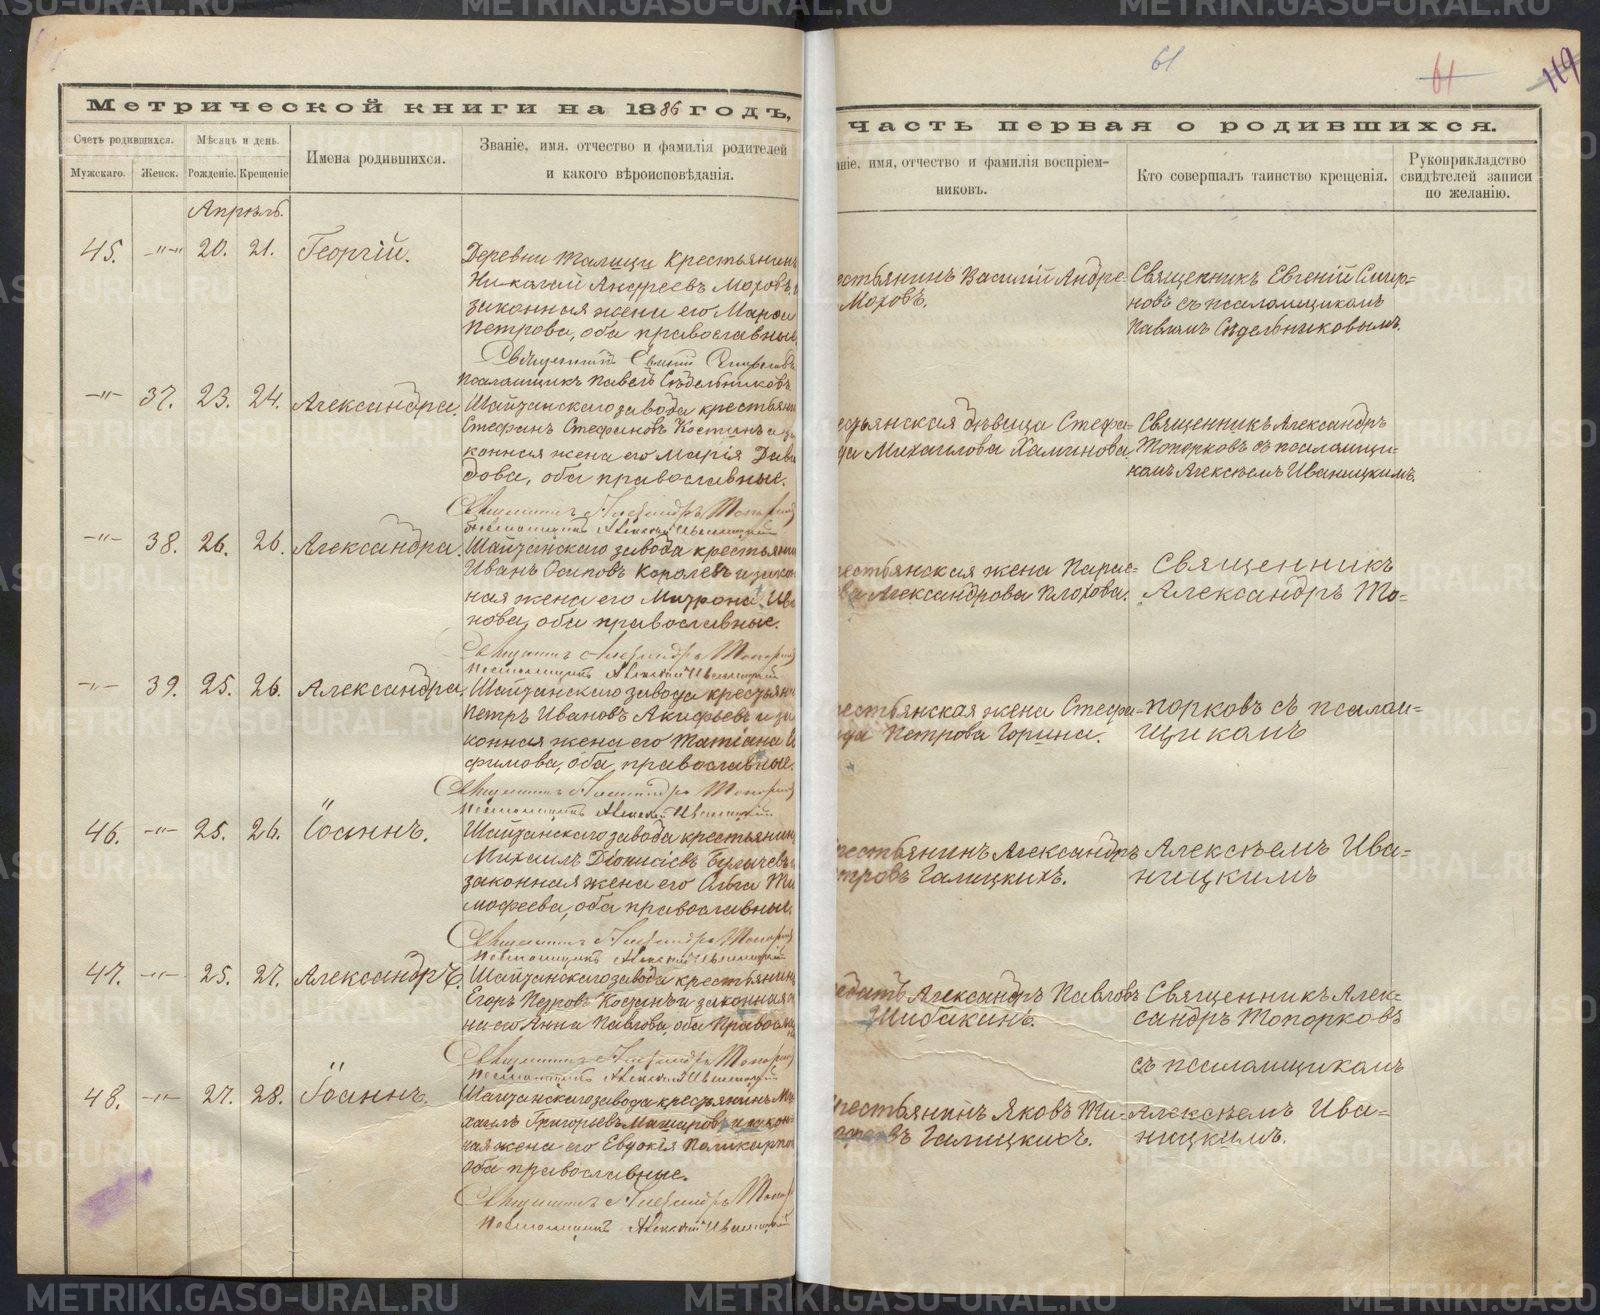 61
61
119
Метрической книги на 1886 годъ,
часть первая о родившихся.
Счетъ родившихся.
Мѣсяцъ и день.
Имена родившихся.
Званіе, имя, отчество и фамилія родителей
и какого вѣроисповѣданія.
Мужскаго.
Женск.
Рожденіе.
Крещеніе
ніе, имя, отчество и фамилія воспріем-
никовъ.
Кто совершалъ таинство крещенія.
Рукоприкладство
свидѣтелей записи
по желанію.
Апрѣль.
45. -"- 20. 21. Георгій.
Деревни Талицы крестьянинъ
Николай Андреевъ Моховъ,
законная жена его
Петрова, оба православные
Священникъ Евгеній
Псаломщикъ Павелъ Сѣдельниковъ
стьянинъ Василій Андре-
Моховъ.
Священникъ Евгеній Смир-
новъ съ псаломщикомъ
Павломъ Сѣдельниковымъ.
-"- 37. 23. 24. Александра.
Шайтанскаго завода крестьяни
Стефанъ Стефановъ Костинъ и за
конная жена его Марія Дави
дова, оба православные.
Священникъ Александръ Топорков
Псаломщикъ Алексѣй Иваницкій
стьянская дѣвица Стефа-
да Михаилова Хаминова.
Священникъ Александръ
Топорковъ съ псаломщи-
комъ Алексѣемъ Иваницкимъ.
-"- 38. 26. 26. Александра.
Шайтанскаго завода крестьяни
Иванъ Осиповъ Королевъ и закон
ная жена его Матрона Ива
нова, оба православные.
Священникъ Александръ Топорков
Псаломщикъ Алексѣй Иваницкій
рестьянская жена Парас-
ва Александрова Плохова.
Священникъ
Александръ То-
-"- 39. 25. 26. Александра
Шайтанскаго завода крестьяни
Петръ Ивановъ Акифьевъ и за
конная жена его Татіана
фимова, оба православные.
Священникъ Александръ Топорков
Псаломщикъ Алексѣй Иваницкій
рестьянская жена Стефа-
да Петрова Горина.
порковъ съ псалом-
щикомъ
46. -"- 25. 26. Іоаннъ.
Шайтанскаго завода крестьянин
Михаилъ Діонисіевъ Булычевъ
законная жена его Ольга Ти
мофеева, оба православные.
Священникъ Александръ Топорков
Псаломщикъ Алексѣй Иваницкій
рестьянинъ Александръ
тровъ Галицкихъ.
Алексѣемъ Ива-
ницкимъ
47. -"- 25. 27. Александръ.
Шайтанскаго завода крестьянин
Егоръ Петровъ и законная
на его Анна Павлова, оба правосла
Священникъ Александръ Топорков
Псаломщикъ Алексѣй Иваницкій
Александръ Павловъ
Шибакинъ.
Священникъ Алек-
сандръ Топорковъ
съ псаломщикомъ
48. -"- 27. 28. Іоаннъ.
Шайтанскаго завода крестьянинъ Ми
хаилъ Григорьевъ и закон
ная жена его Евдокія Поликарпо
оба православные.
Священникъ Александръ Топор
Псаломщикъ Алексѣй Иваницкій
рестьянинъ Яковъ Ти-
Галицкихъ.
Алексѣемъ Ива-
ницкимъ.
METRIKI.GASO-URAL.RU